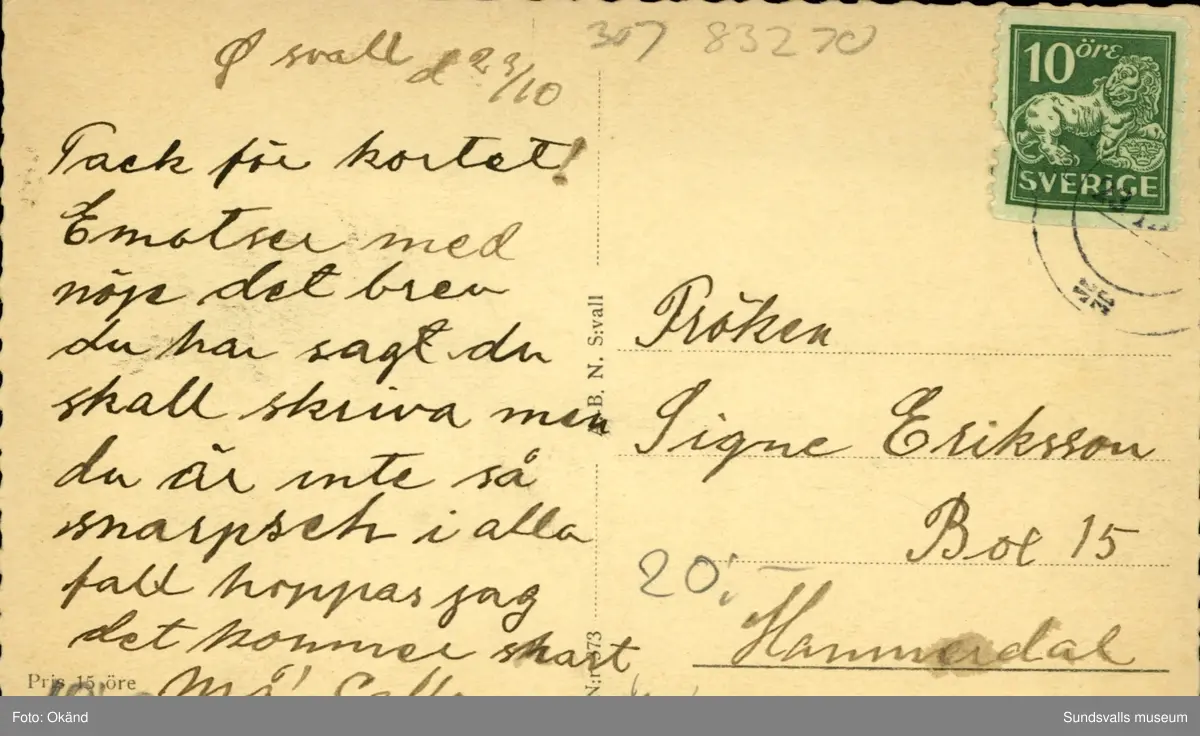 Ø svall d 23/10
Tack för kortet!
Emotser med
nöje det brev
du har sagt du
skall skriva men
du är inte så
snarpsch i alla
fall hoppas jag
det kommer snart
307 83270
10 öre
SVERIGE
A.-B. N. S:vall
Fröken
Signe Eriksson
Box 15
20:-
Hammerdal
Pris 15 öre
Foto: Okänd
Sundsvalls museum